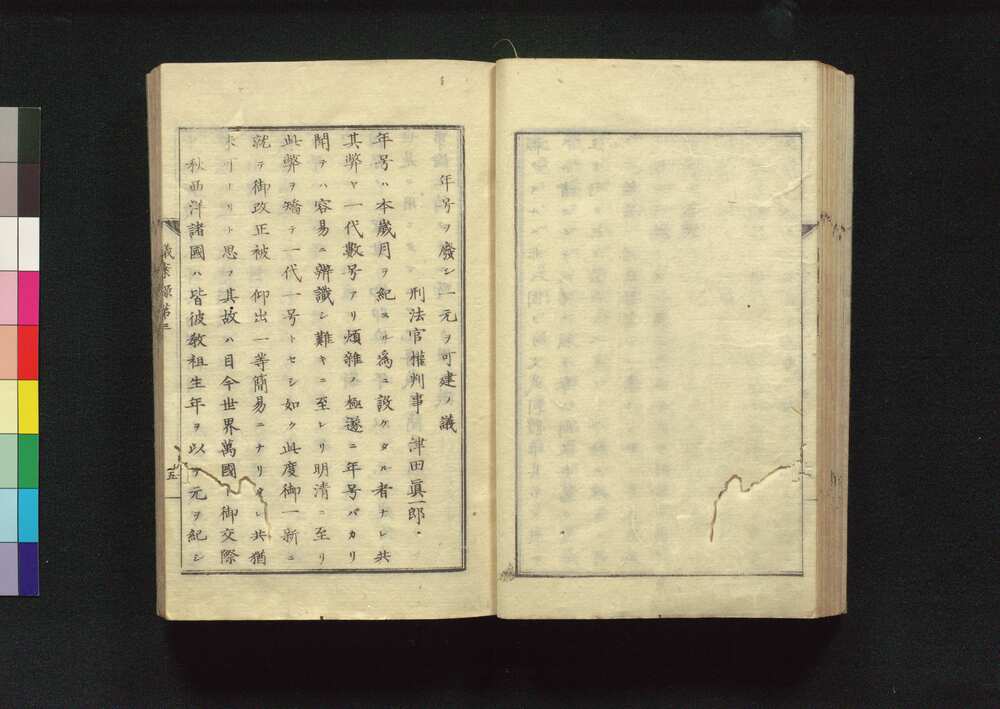 年号ヲ廢シ一元ヲ可建ノ議
刑法官權判事津田眞一郎
年号ハ本歳月ヲ紀スル爲ニ設ケタル者ナレ共
其弊ヤ一代數号アリ煩雜ノ極遂ニ年号バカリ
聞ヲハ容易ニ辨識シ難キニ至レリ明清ニ至リ
此弊ヲ矯テ一代一号トセシ如ク此度御一新ニ
就テ御改正被仰出一等簡易ニナリタレ共猶
未可ナリト思フ其故ハ目今世界萬國ト御交際
秋西洋諸國ハ皆彼敎祖生年ヲ以テ元ヲ紀シ
議案録第三
五